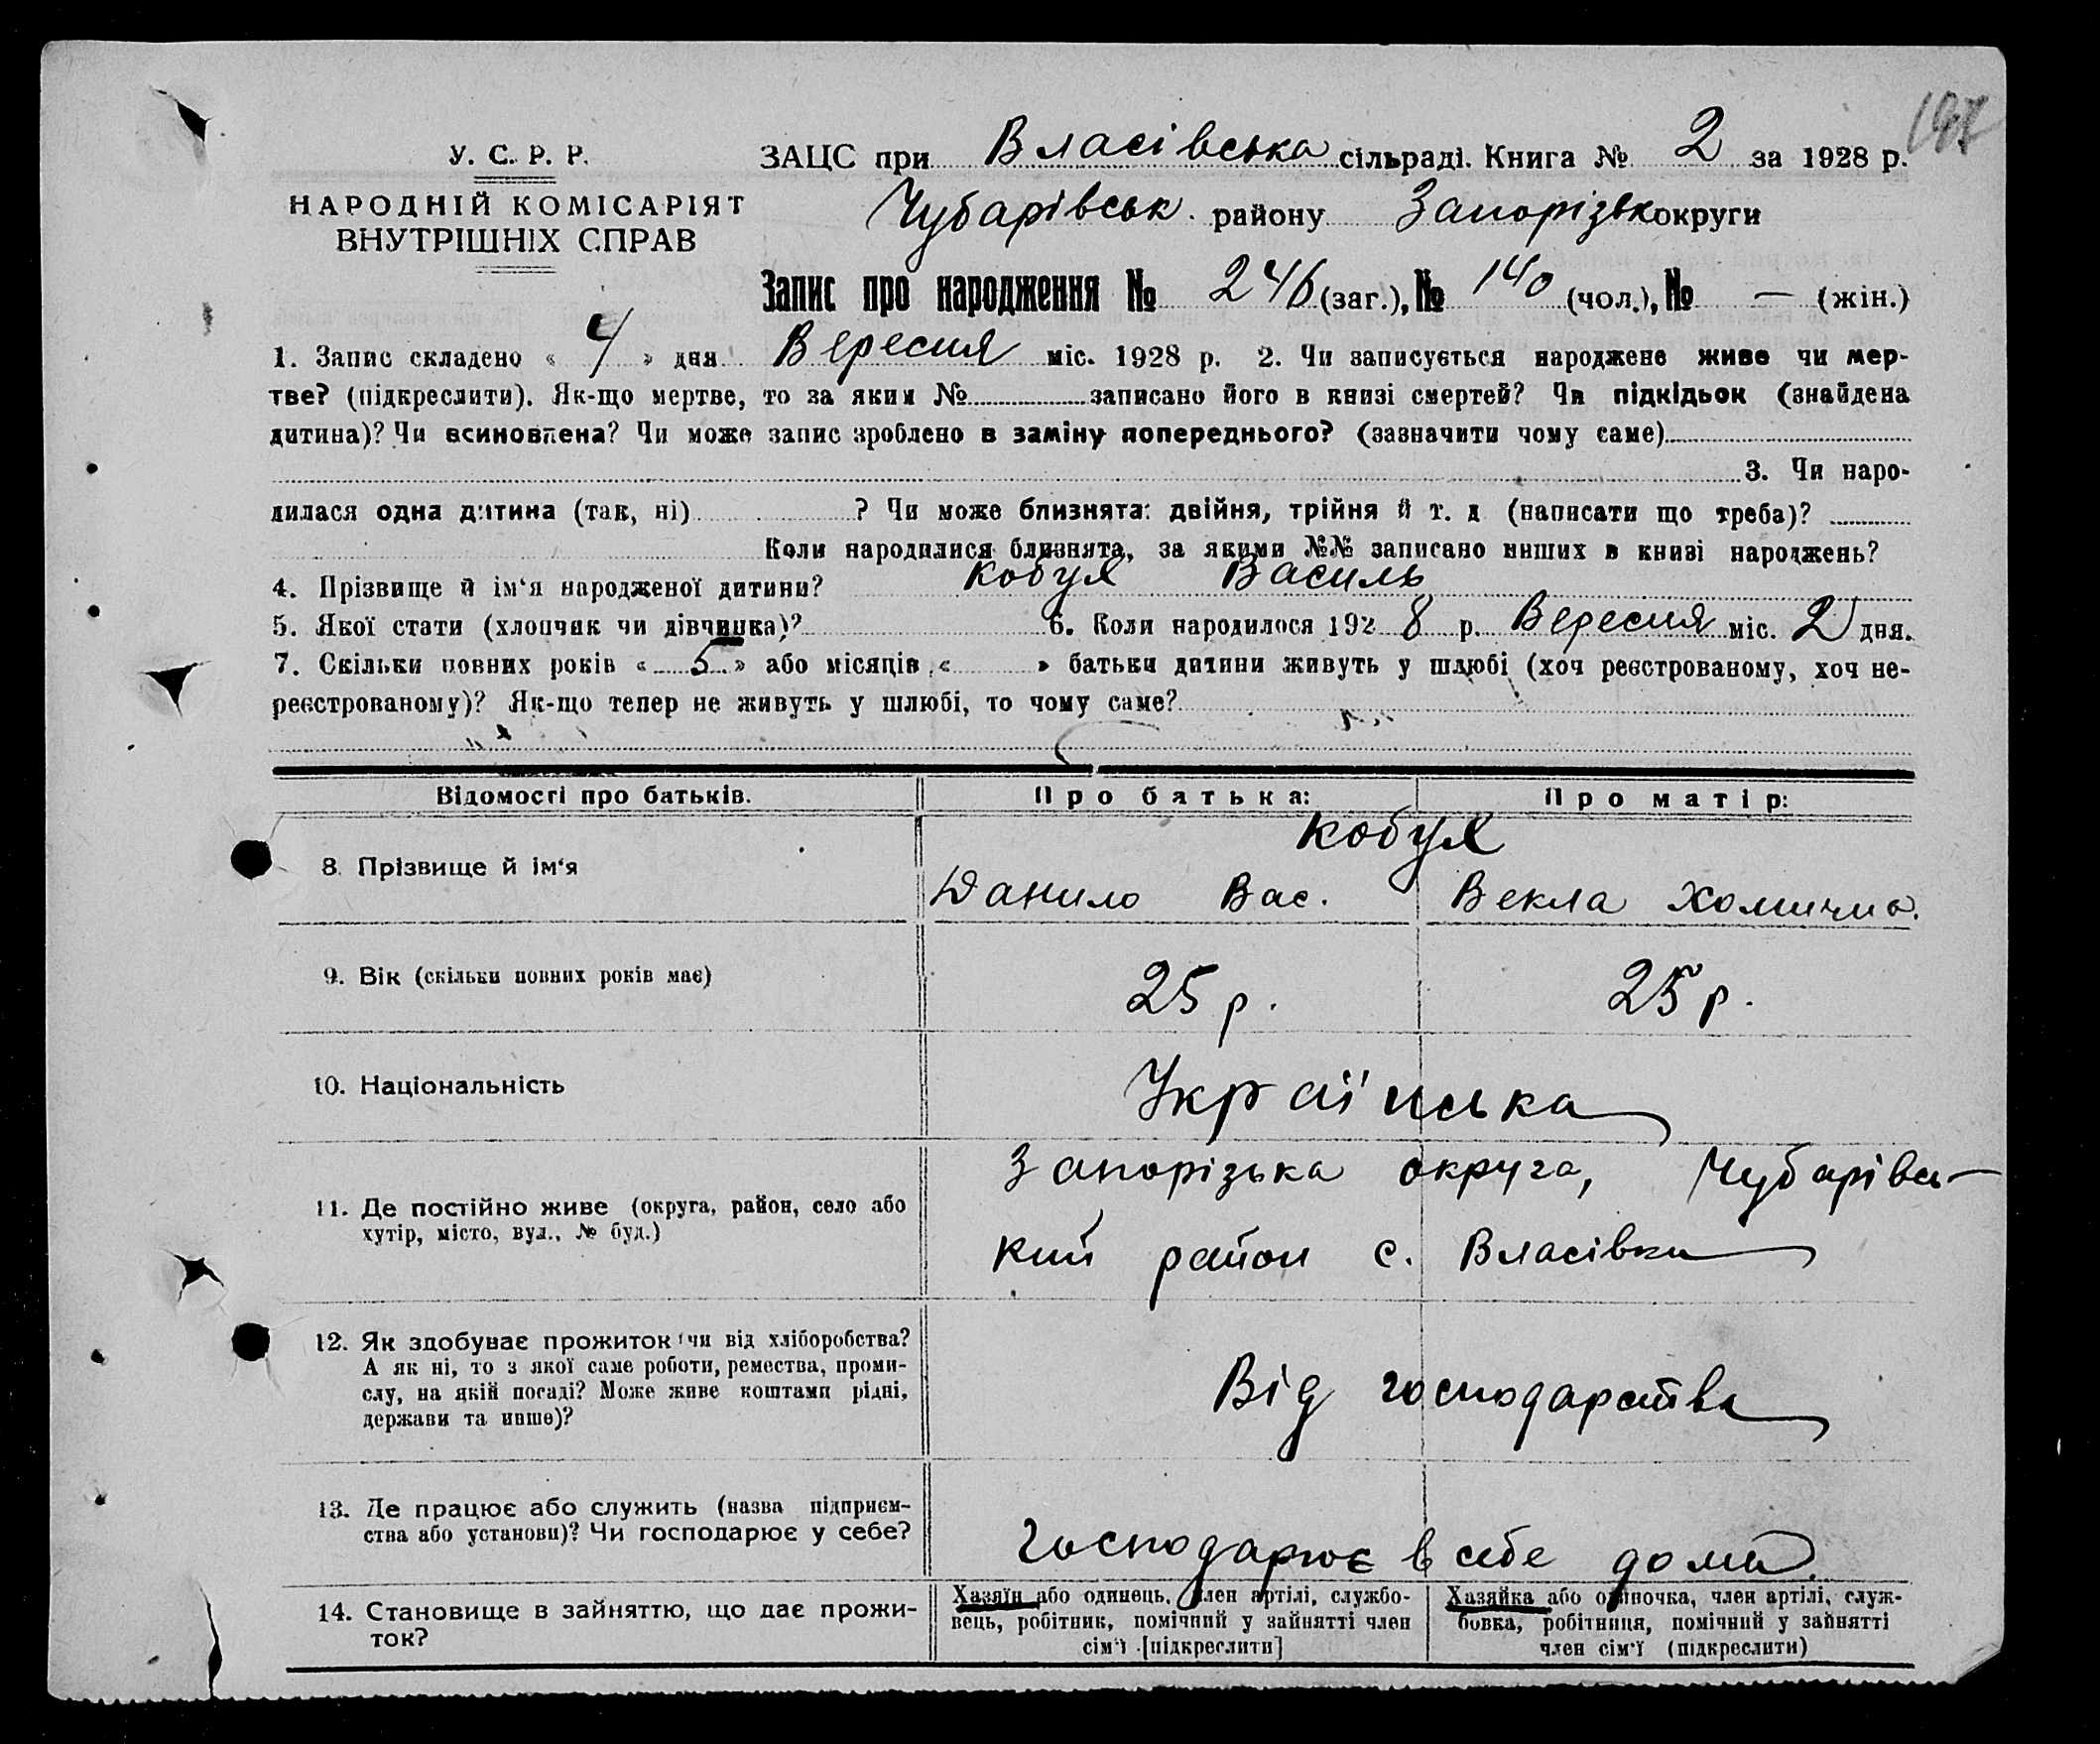 197
У. С. Р. Р.
НАРОДНІЙ КОМІСАРІЯТ
ВНУТРІШНІХ СПРАВ
ЗАЦС при Власівська сільраді. Книга № 2 за 1928 р.
Чубарівськ. району Запорізьк округи
Запис про народження № 246 (заг.), № 140 (чол.), № — (жін.)
1. Запис складено « 4 » дня Вересня міс. 1928 р. 2. Чи записується народжене живе чи мер-
тве? (підкреслити). Як-що мертве, то за яким № записано його в книзі смертей? Чи підкідьок (знайдена
дитина)? Чи всиновлена? Чи може запис зроблено в заміну попереднього? (зазначити чому саме)
3. Чи наро-
дилася одна дитина (так, ні) ? Чи може близнята: двійня, трійня й т. д (написати що треба)?
Коли народилися близнята, за якими №№ записано инших в книзі народжень?
4. Прізвище й ім‘я народженої дитини? Кобул Василь
5. Якої стати (хлопчик чи дівчинка)? 6. Коли народилося 1928 р. Вересня міс. 2 дня.
7. Скільки повних років « 5 » або місяців « » батьки дитини живуть у шлюбі (хоч реєстрованому, хоч не-
реєстрованому)? Як-що тепер не живуть у шлюбі, то чому саме?
Відомості про батьків. Про батька: Про матір:
Кобул
8. Прізвище й ім‘я Данило Вас. Векла Хомична.
9. Вік (скільки повних років має) 25 р. 25 р.
10. Національність Українська
11. Де постійно живе (округа, район, село або
хутір, місто, вул., № буд.)
Запорізька округа, Чубарівсь-
кий район с. Власівка
12. Як здобуває прожиток чи від хліборобства?
А як ні, то з якої саме роботи, ремества, проми-
слу, на якій посаді? Може живе коштами рідні,
держави та инше)?
Від господарства
13. Де працює або служить (назва підприєм-
ства або установи)? Чи господарює у себе?
Господарює в себе дома.
14. Становище в зайняттю, що дає прожи-
ток?
Хазяїн або одинець, член артілі, службо-
вець, робітник, помічний у зайнятті член
сім‘ї [підкреслити]
Хазяйка або одиночка, член артілі, служ-
бовка, робітниця, помічний у зайнятті
член сім‘ї (підкреслити)